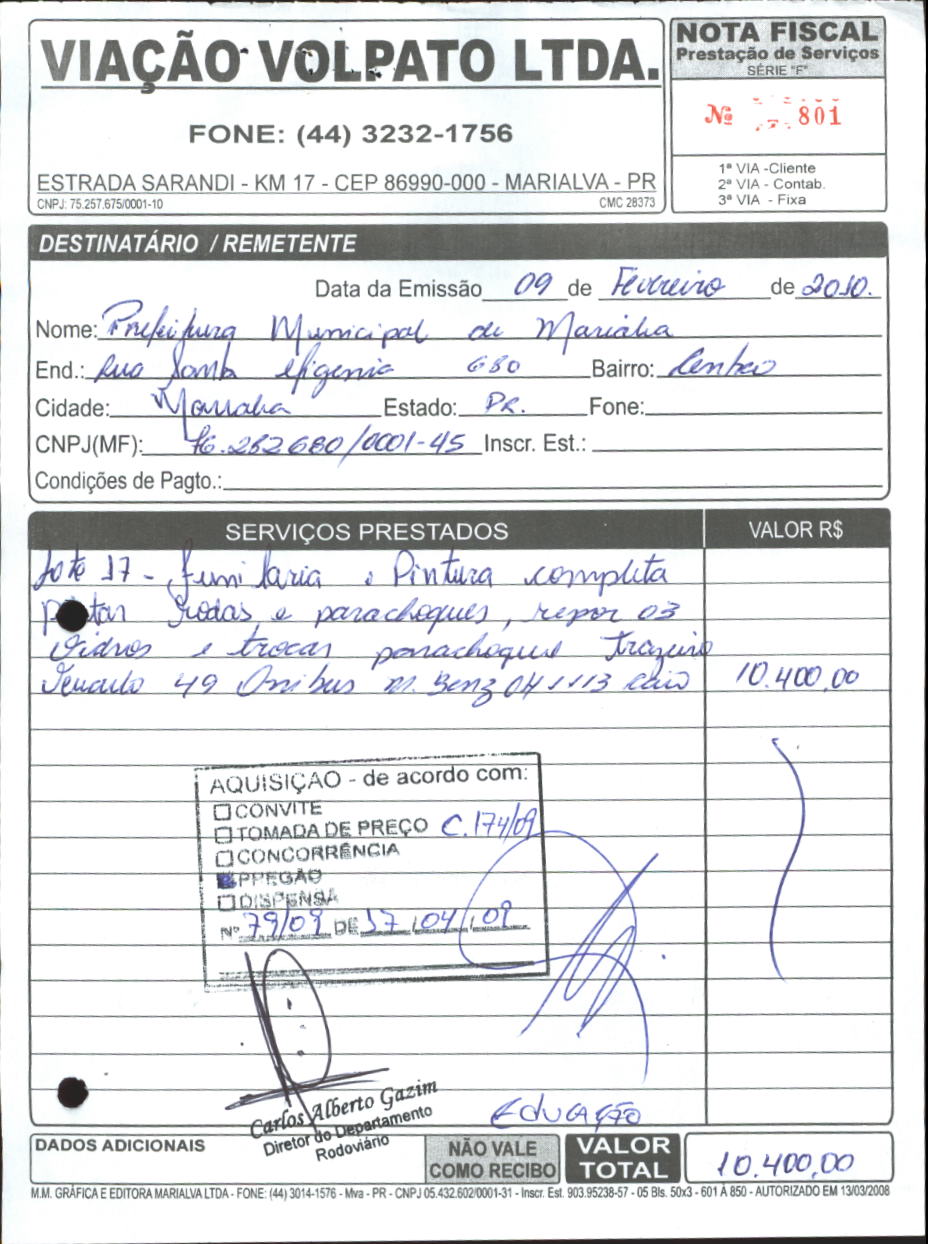 VIAÇÃO VOLPATO LTDA.
FONE: (44) 3232-1756
ESTRADA SARANDI - KM 17 - CEP 86990-000 - MARIALVA - PR
CNPJ: 75.257.675/0001-10 CMC 28373
NOTA FISCAL
Prestação de Serviços
SÉRIE "F"
Nº 801
1ª VIA -Cliente
2ª VIA - Contab.
3ª VIA - Fixa
DESTINATÁRIO / REMETENTE
Data da Emissão 09 de Fevereiro de 2010.
Nome: Prefeitura Municipal de Marialva
End.: Rua Santa efigenia 680 Bairro: Centro
Cidade: Marialva Estado: PR. Fone:
CNPJ(MF): 76.282680/0001-45 Inscr. Est.:
Condições de Pagto.:
SERVIÇOS PRESTADOS VALOR R$
Lote 17 - funilaria e Pintura completa
pintar rodas e parachoques, repor 03
vidros e trocar parachoque trazeiro
49 Onibus M. Benz 1113 caio 10.400,00
AQUISIÇAO - de acordo com:
CONVITE
TOMADA DE PREÇO C.174/09
CONCORRÊNCIA
PREGÃO
DISPENSA
Nº 79/09 DE 17/04/09
Carlos Alberto Gazim
Diretor do Departamento
Rodoviário
EDUCAÇÃO
DADOS ADICIONAIS
NÃO VALE
COMO RECIBO
VALOR
TOTAL
10.400,00
M.M. GRÁFICA E EDITORA MARIALVA LTDA - FONE: (44) 3014-1576 - Mva - PR - CNPJ 05.432.602/0001-31 - Inscr. Est. 903.95238-57 - 05 Bls. 50x3 - 601 À 850 - AUTORIZADO EM 13/03/2008